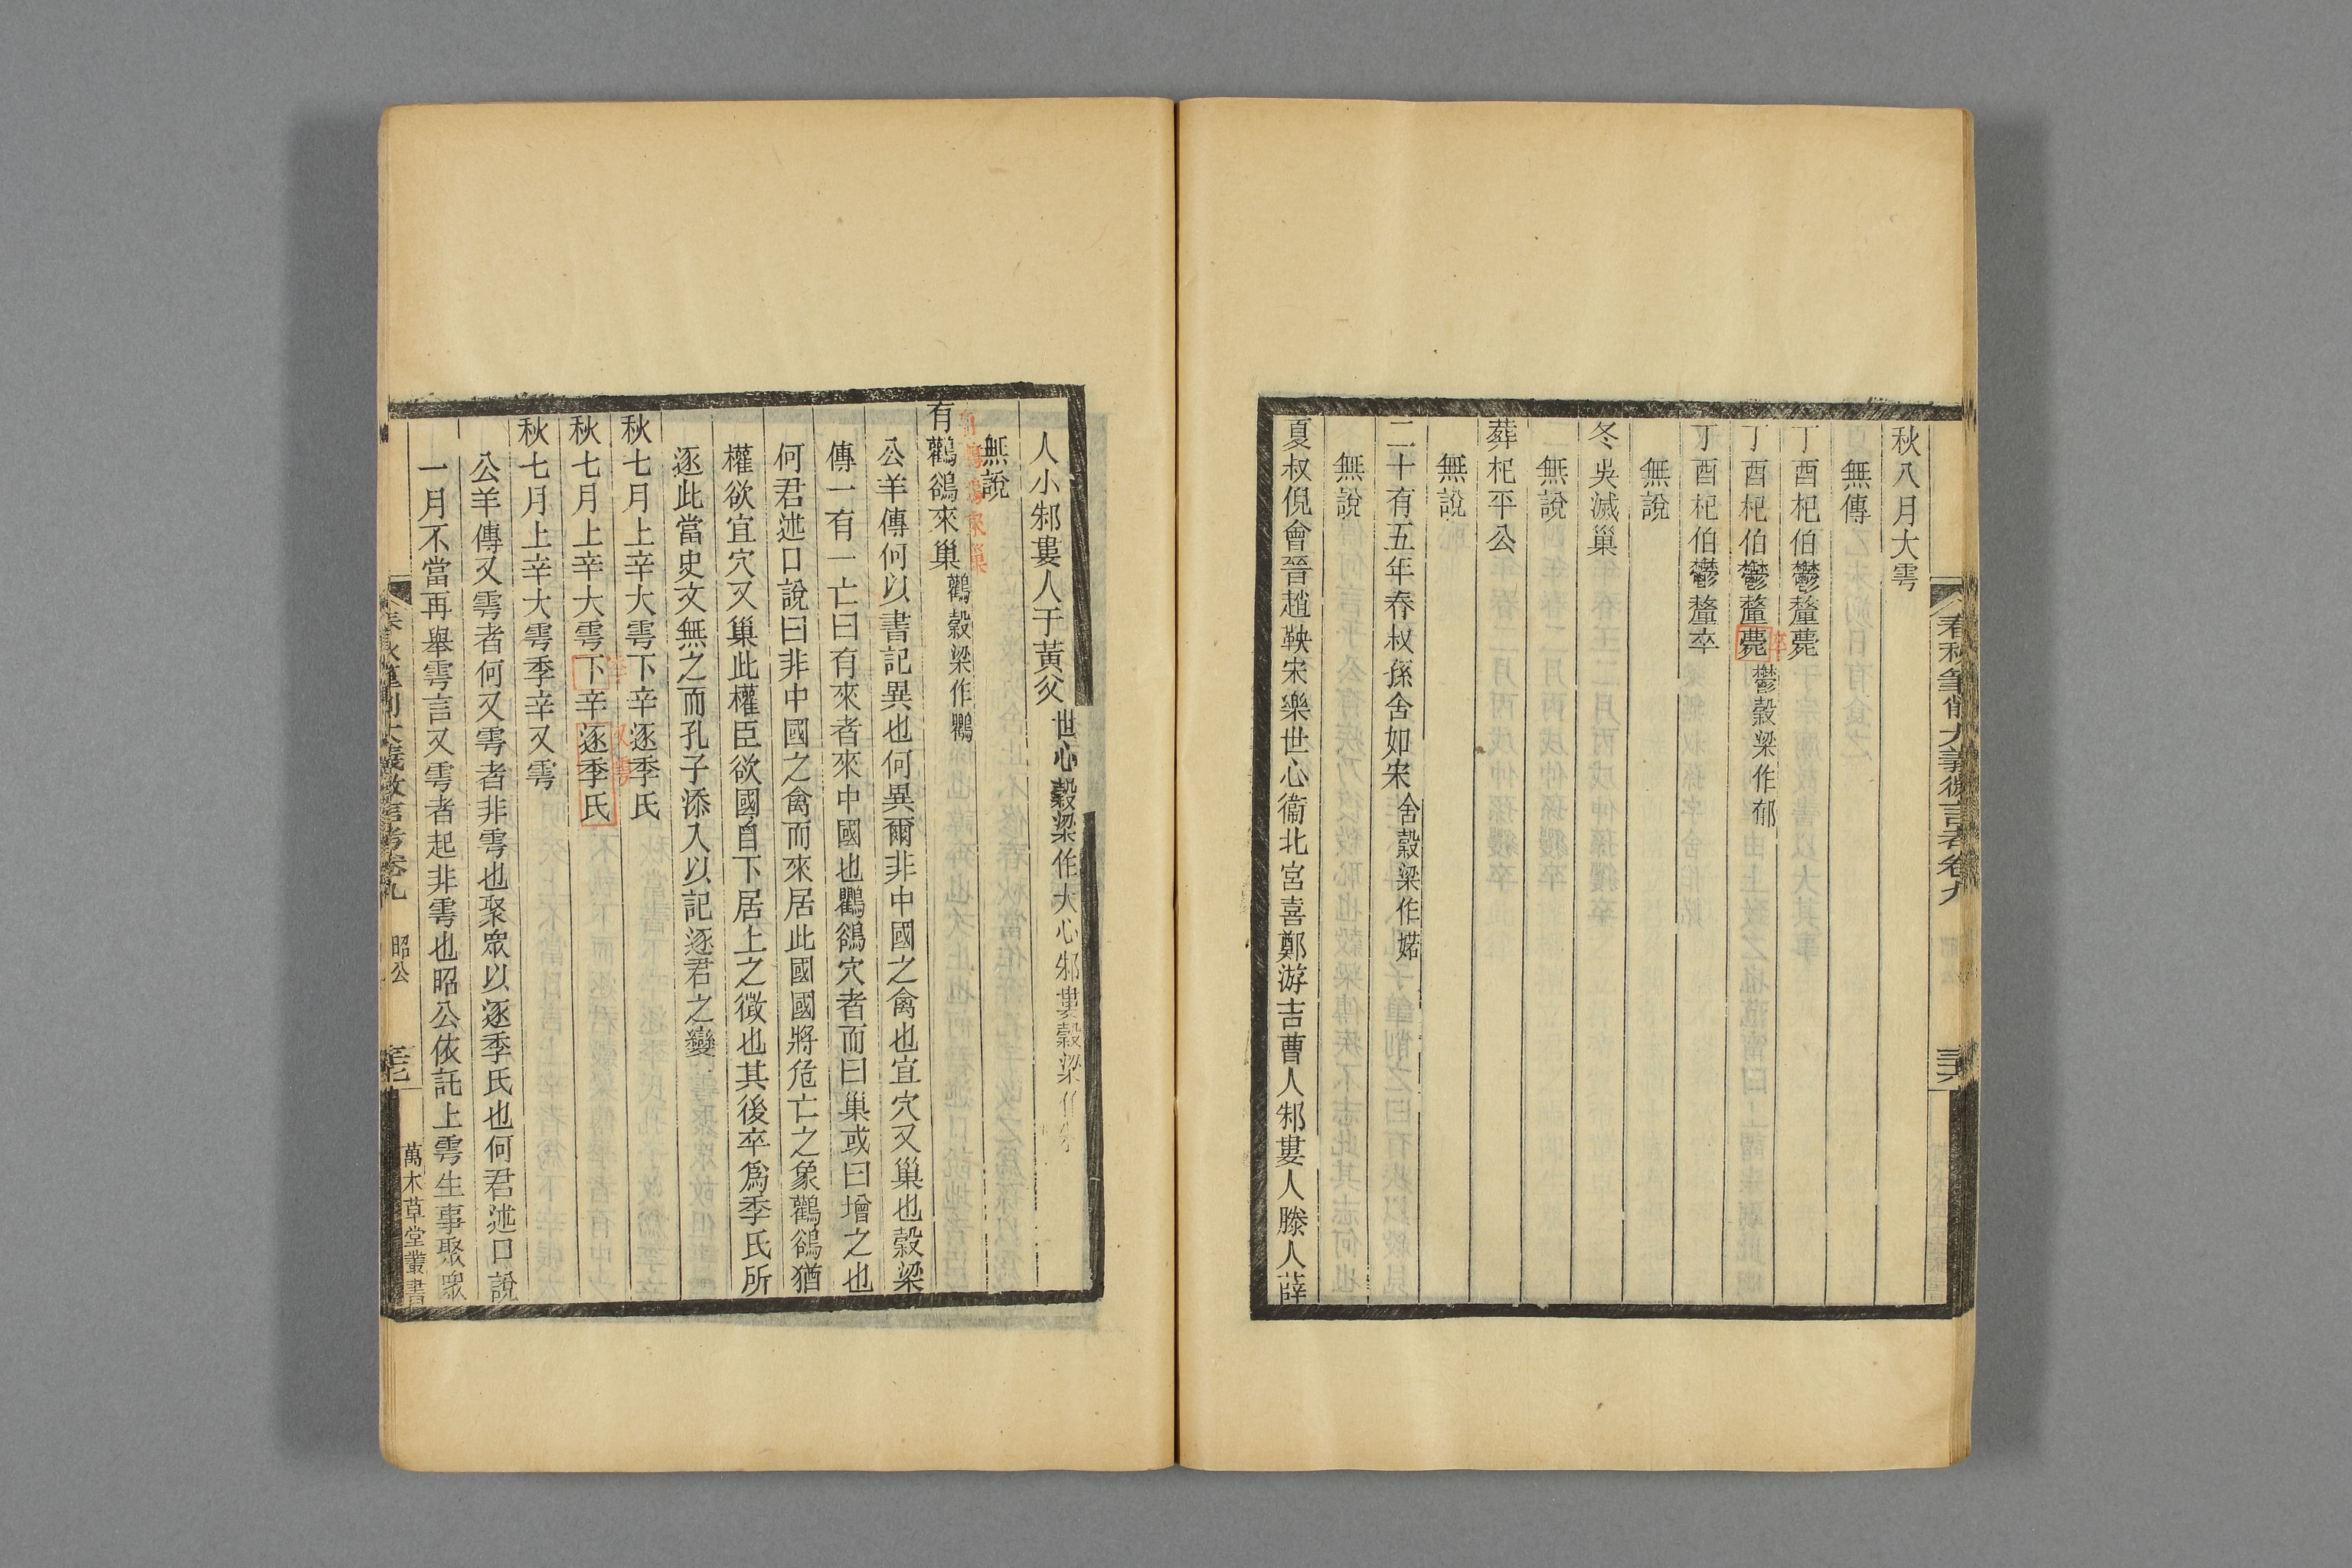 春秋筆削大義微言考卷九
秋八月大雩
無傳
丁酉杞伯鬱釐薨
卒
丁酉杞伯鬱釐薨鬱穀梁作郁
丁酉杞伯鬱釐卒
無說
冬吳滅巢
無說
葬杞平公
無說
二十有五年春叔孫舍如宋舍穀梁作婼
無說
夏叔倪會晉趙鞅宋樂世心衞北宮喜鄭游吉曹人邾婁人滕人薛
人小邾婁人于黃父世心穀梁作大心邾婁穀梁
無說
有鸛鵒來巢鸛穀梁作鸜
公羊傳何以書記異也何異爾非中國之禽也宜穴又巢也穀梁
傳一有一亡曰有來者來中國也鸜鵒穴者而曰巢或曰增之也
何君述口說曰非中國之禽而來居此國國將危亡之象鸛鵒猶
權欲宜穴又巢此權臣欲國自下居上之徵也其後卒爲季氏所
逐此當史文無之而孔子添入以記逐君之變
秋七月上辛大雩下辛逐季氏
又雩
秋七月上辛大雩下辛逐季氏
秋七月上辛大雩季辛又雩
公羊傳又雩者何又雩者非雩也聚眾以逐季氏也何君述口說
一月不當再舉雩言又雩者起非雩也昭公依託上雩生事聚眾
昭公
萬木草堂叢書